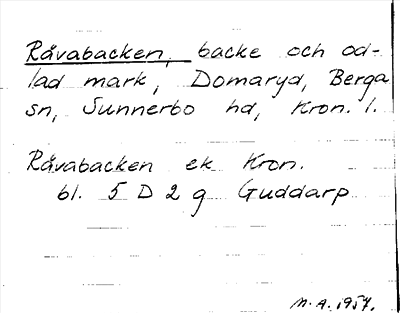 Råvabacken, backe och od-
lad mark, Domaryd, Berga
sn, Sunnerbo hd, Kron. l.
Råvabacken ek Kron.
bl. 5 D 2 g Guddarp
M.A. 1957.